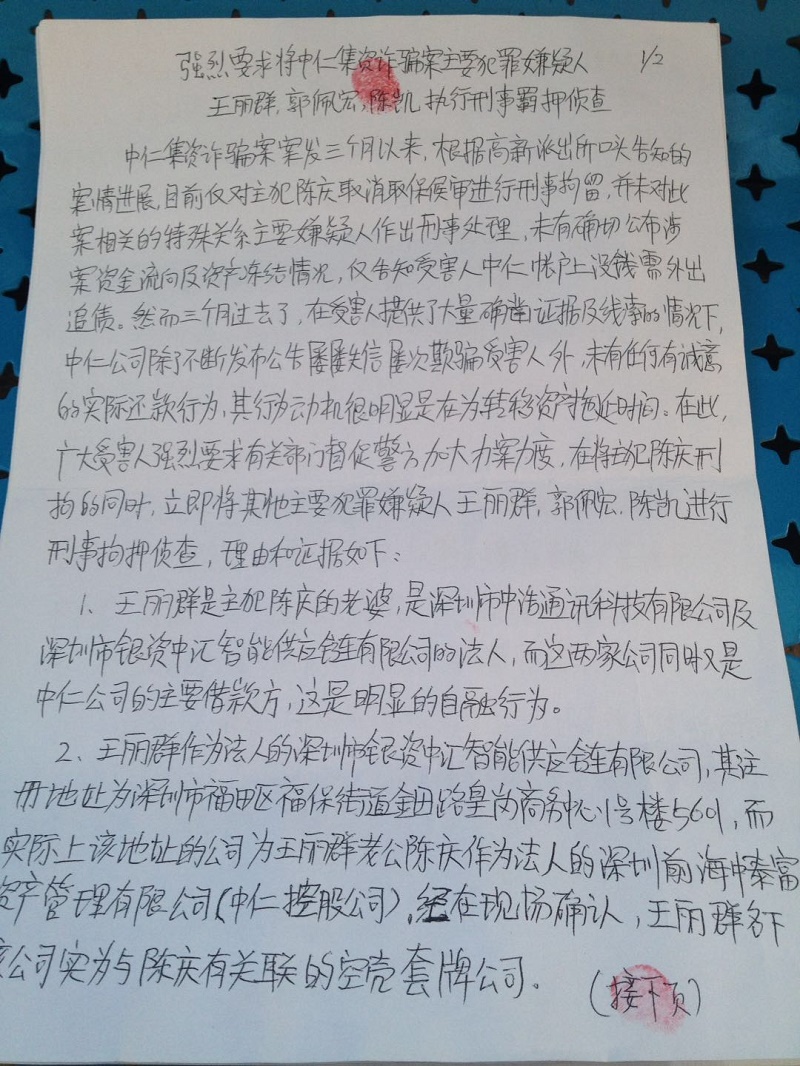 强烈要求将中仁集资诈骗案主要犯罪嫌疑人
1/2
王丽群,郭佩宏,陈凯执行刑事羁押侦查
中仁集资诈骗案案发三个月以来,根据高新派出所口头告知的
案情进展,目前仅对主犯陈庆取消取保候审进行刑事拘留,并未对此
案相关的特殊关系主要嫌疑人作出刑事处理,未有确切公布涉
案资金流向及资产冻结情况,仅告知受害人中仁帐户上没钱需外出
追债。然而三个月过去了,在受害人提供了大量确凿证据及线索的情况下,
中仁公司除了不断发布公告屡屡失信屡次欺骗受害人外,未有任何有诚意
的实际还款行为,其行为动机很明显是在为转移资产拖延时间。在此,
广大受害人强烈要求有关部门督促警方加大力案力度,在将主犯陈庆刑
拘的同时,立即将其他主要犯罪嫌疑人王丽群,郭佩宏.陈凯进行
刑事拘押侦查,理由和证据如下:
1、王丽群是主犯陈庆的老婆,是深圳市中浩通讯科技有限公司及
深圳市银资中汇智能供应链有限公司的法人,而这两家公司同时又是
中仁公司的主要借款方,这是明显的自融行为。
2、王丽群作为法人的深圳市银资中汇智能供应链有限公司,其注
册地址为深圳市福田区福保街道金田路皇岗商务中心1号楼5601,而
实际上该地址的公司为王丽群老公陈庆作为法人的深圳前海中泰富
资产管理有限公司(中仁控股公司),经在现场确认,王丽群名下
该公司实为与陈庆有关联的空壳套牌公司。
(接下页)